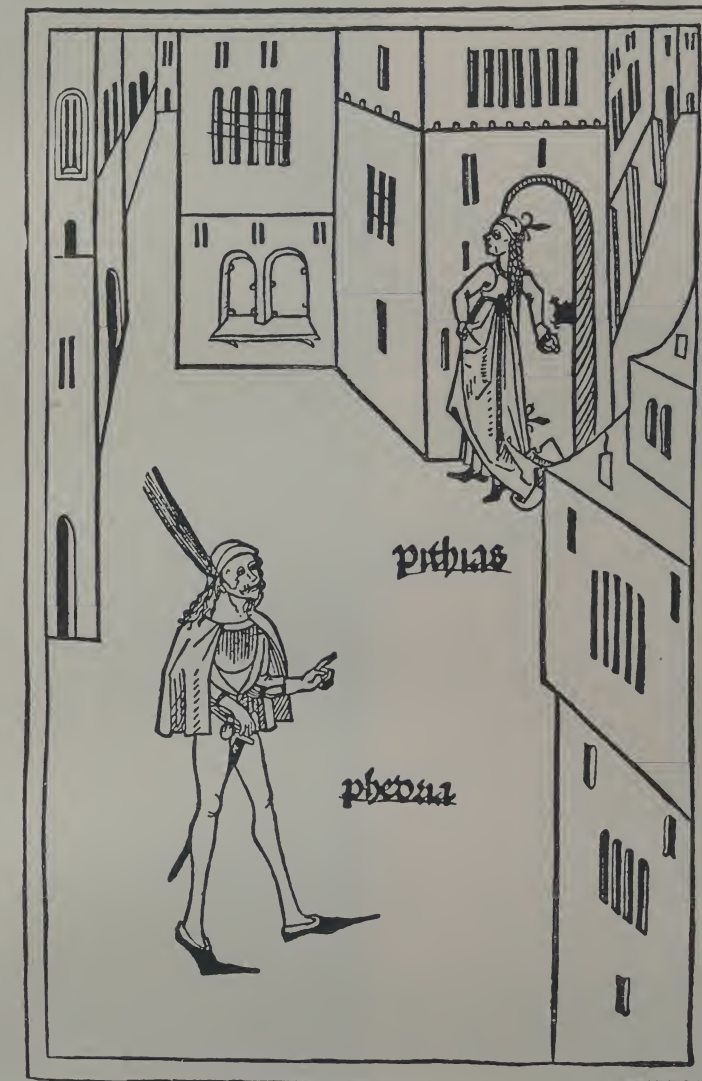 pithias
phedria